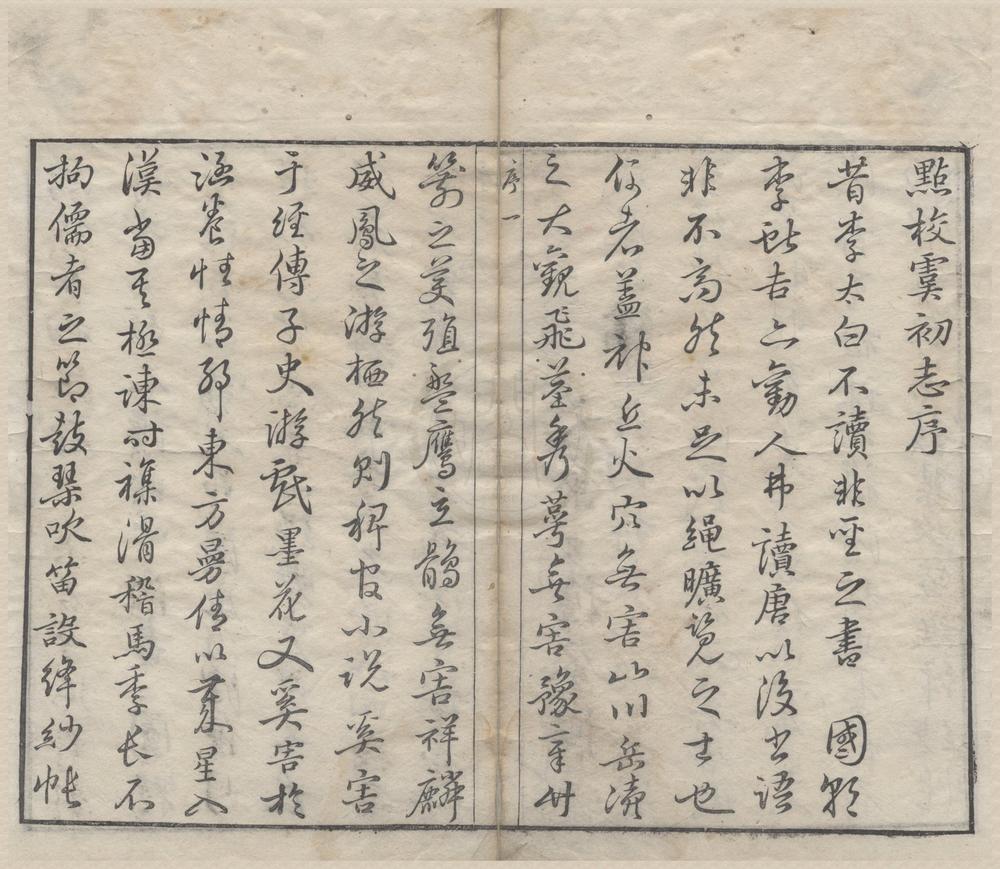 點校虞初志序
昔李太白不讀非聖之書　國朝
李獻吉亦勸人弗讀唐以後書語
非不高然未足以繩曠覽之士也
何者蓋神丘火穴無害山川岳瀆
之大觀飛莖秀萼無害豫章竹
序一
箭之美殖盤鷹立鶻無害祥麟
威鳳之游栖然則稗官小說奚害
于經傳子史游戲墨花又奚害於
涵養性情耶東方曼倩以歲星入
漢當其極諫時襍滑稽馬季長不
拘儒者之節鼓琴吹笛設絳紗帳